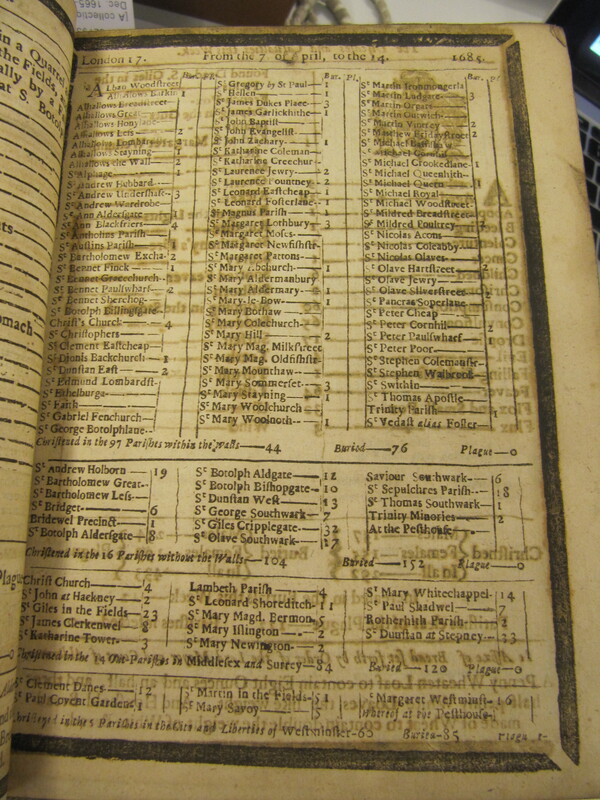 London 17. From the 7 of April, to the 14. 1685.
Bur. Pl.
Alban Woodstreet
Alhallows Barkin 1
Alhallows Breadstreet
Alhallows Great
Alhallows Hony lane
Alhallows Less 2
Alhallows Lombard 2
Alhallows Stayning 1
Alhallows the Wall 2
St Alphage 1
St Andrew Hubbard
St Andrew Undershaft 3
St Andrew Wardrobe
St Ann Aldersgate
St Ann Blackfriers 4
St Antholins Parish
St Austins Parish
St Bartholomew Excha. 2
St Bennet Finck 1
St Bennet Gracechurch
St Bennet Paulswharf 2
St Bennet Sherehog
St Botolph Billingsgate
Christ's Church 4
St Christophers
St Clement Eastcheap
St Dionis Backchurch 1
St Dunstan East 2
St Edmund Lombardst.
St Ethelburga
St Faith
St Gabriel Fenchurch
St George Botolphlane
Bur. Pl.
St Gregory by St Paul 1
St Hellen 1
St James Dukes Place 3
St James Garlickhithe 1
St John Baptist
St John Evangelist
St John Zachary 1
St Katharine Coleman
St Katharine Creechur
St Laurence Jewry 2
St Laurence Pountney 2
St Leonard Eastcheap 1
St Leonard Fosterlane 1
St Magnus Parish 1
St Margaret Lothbury 3
St Margaret Moses
St Margaret Newfishstr
St Margaret Pattons
St Mary Abchurch 1
St Mary Aldermanbury
St Mary Aldermary 1
St Mary-le-Bow 1
St Mary Bothaw
St Mary Colechurch
St Mary Hill 2
St Mary Mag. Milkstreet
St Mary Mag. Oldfishstr
St Mary Mounthaw
St Mary Sommerset 3
St Mary Stayning 1
St Mary Woolchurch
St Mary Woolnoth 1
Bur. Pl.
St Martin Ironmongerla
St Martin Ludgate 3
St Martin Orgars
St Martin Outwich
St Martin Vintrey 2
St Matthew Fridaystreet 2
St Michael Bassishaw
St Michael Cornhil
St Michael Crookedlane 1
St Michael Queenhith
St Michael Quern 1
St Michael Royal
St Michael Woodstreet
St Mildred Breadstreet
St Mildred Poultrey 2
St Nicolas Acons
St Nicolas Coleabby
St Nicolas Olaves
St Olave Hartstreet 2
St Olave Jewry
St Olave Silverstreet 2
St Pancras Soperlane
St Peter Cheap
St Peter Cornhil 2
St Peter Paulswharf 1
St Peter Poor
St Stephen Colemanstr
St Stephen Walbrook
St Swithin
St Thomas Apostle
Trinity Parish 1
St Vedast alias Foster
Christened in the 97 Parishes within the Walls 44 Buried 76 Plague 0
St Andrew Holborn 19
St Bartholomew Great
St Bartholomew Less
St Bridget 6
Bridewel Precinct 1
St Botolph Aldersgate 8
St Botolph Aldgate 12
St Botolph Bishopgate 10
St Dunstan West 13
St George Southwark 7
St Giles Cripplegate 32
St Olave Southwark 17
Saviour Southwark 6
St Sepulchres Parish 18
St Thomas Southwark 1
Trinity Minories 2
At the Pesthouse
Christened in the 16 Parishes without the Walls 104 Buried 152 Plague 0
Christ Church 4
St John at Hackney 2
St Giles in the Fields 23
St James Clerkenwel 8
St Katharine Tower 3
Lambeth Parish 4
St Leonard Shoreditch 11
St Mary Magd. Bermon. 5
St Mary Islington 2
St Mary Newington 2
St Mary Whitechappel 14
St Paul Shadwel 7
Rotherhith Parish 2
St Dunstan at Stepney 33
Christened in the 14 Out-Parishes in Middlesex and Surrey 84 Buried 120 Plague 0
St Clement Danes 12
St Paul Covent Garden 1
St Martin In the Fields 51
St Mary Savoy 5
St Margaret Westminst 16
Whereof at the Pesthouse
Christened in the 5 Parishes in the City and Liberties of Westminster 60 Buried 85 Plague